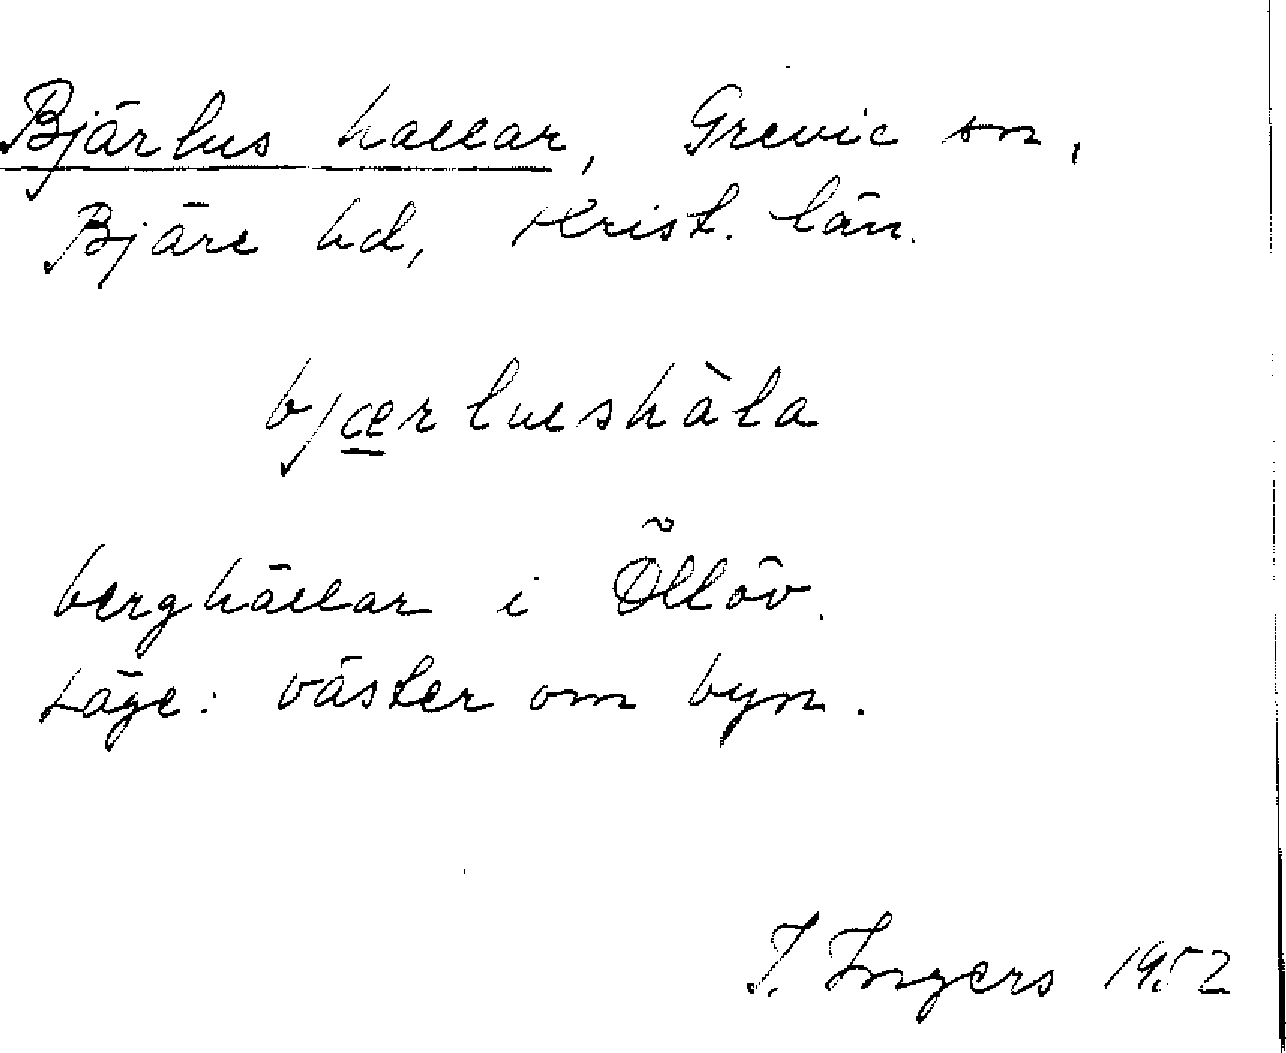 Bjärlus hallar, Grevie sn,
Bjäre hd, Krist. län.
bjærlueshàla
berghällar i Öllöv.
Läge: väster om byn.
I. Ingers 1952